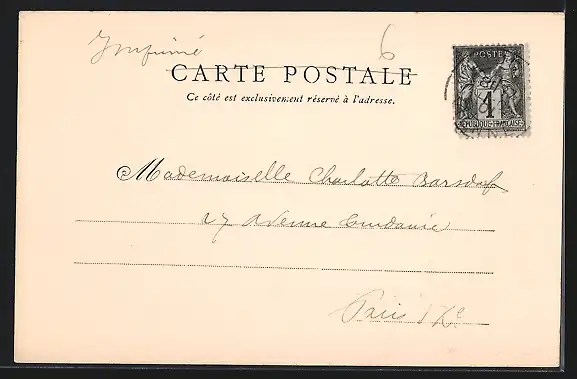 Imprimé 6
CARTE POSTALE
Ce côté est exclusivement réservé à l'adresse.
POSTES
1
REPUBLIQUE FRANÇAISE
Mademoiselle Charlotte Barsdorf
27 Avenue
Paris